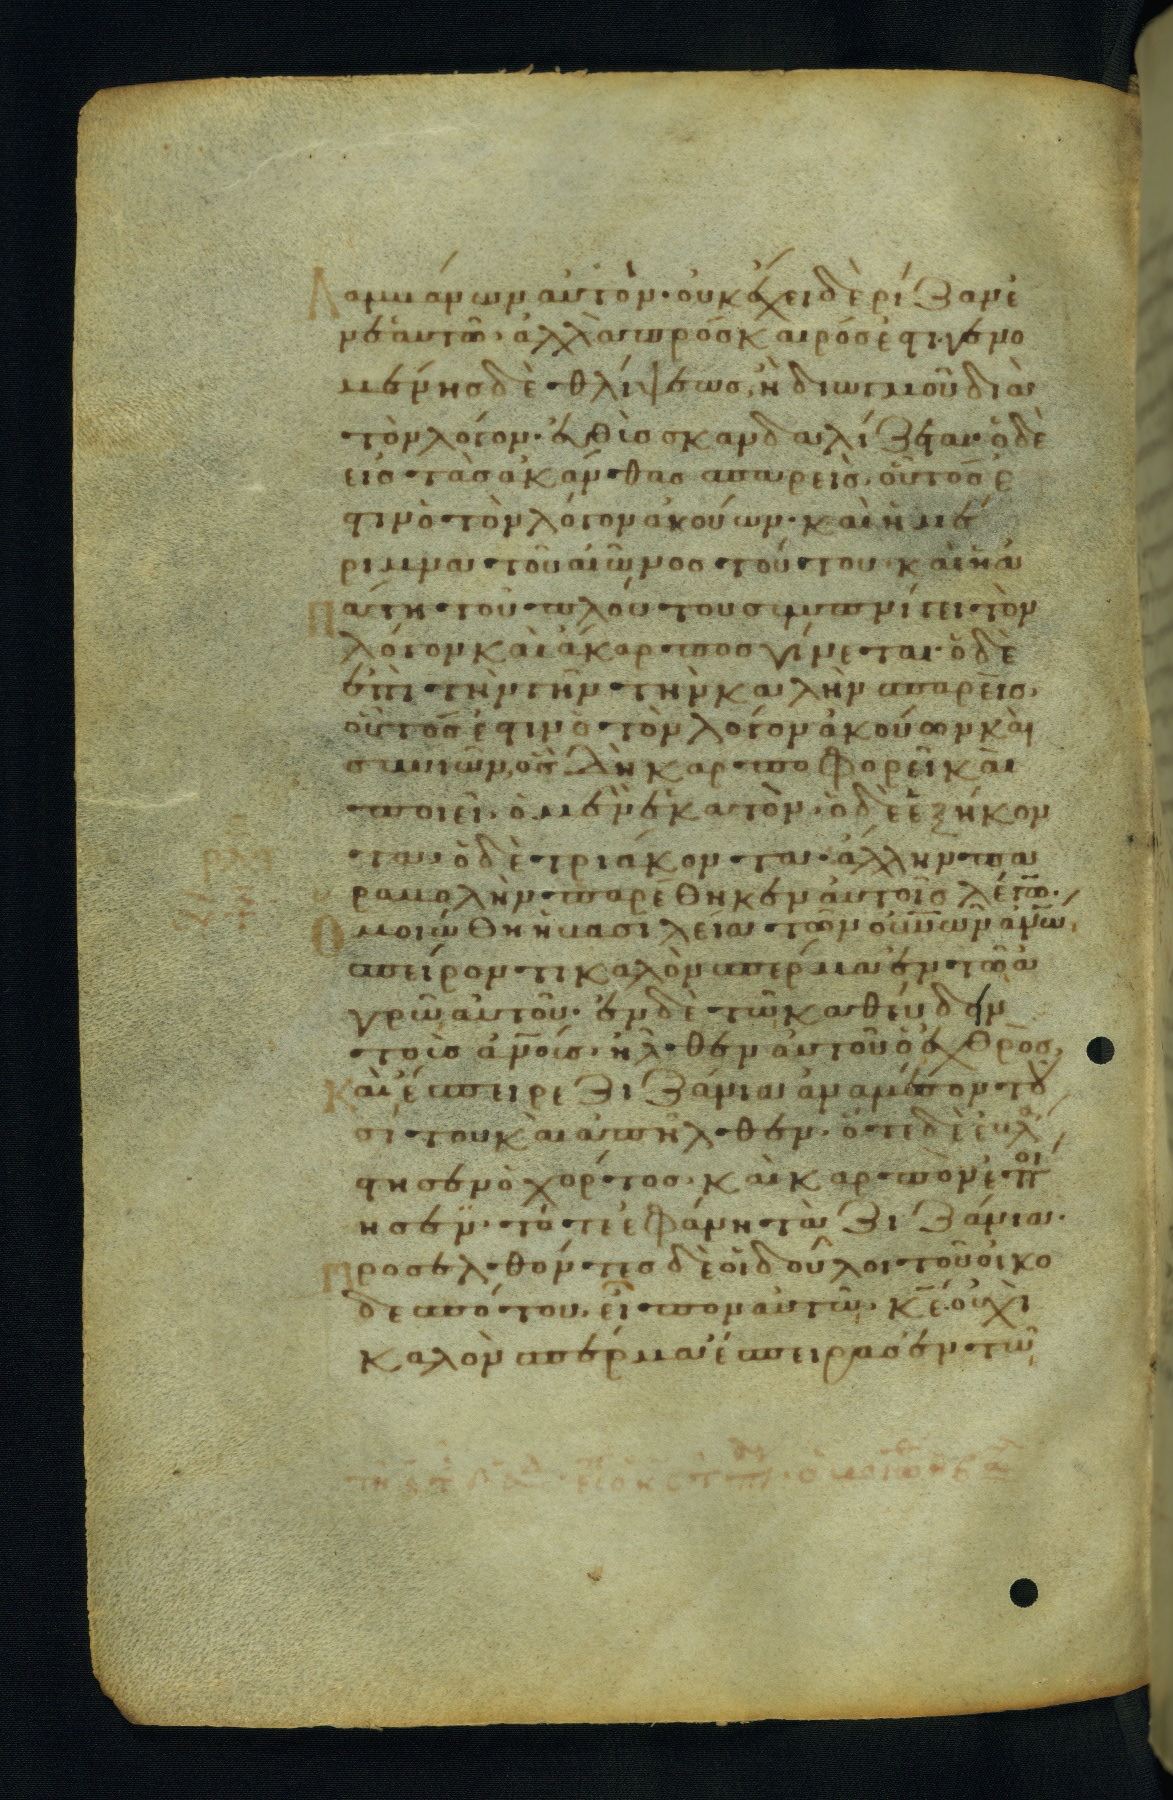 Λαμβάνων αὐτὸν· οὐκ ἔχει δὲ ρίζαν ἐ
ν ἑαυτῶ· ἀλλὰ πρόσκαιρός ἐστι· γενο
μένης δὲ θλίψεως, ἢ διωγμοῦ διὰ
τὸν λόγον· εὐθὺς σκανδαλίζεται· ὁ δὲ
εἰς τὰς ἀκάνθας σπαρεὶς, οὗτός ἐ
στιν ὁ τὸν λόγον ἀκούων· καὶ ἡ μέ
ριμνα τοῦ αἰῶνος τούτου, καὶ ἡ ἀ
Πάτη τοῦ πλούτου συμπνίγει τὸν
λόγον καὶ ἄκαρπος γίνεται· ὁ δὲ
ἐπὶ τὴν γῆν τὴν καλὴν σπαρεὶς,
οὗτός ἐστιν ὁ τὸν λόγον ἀκούων καὶ
συνιῶν, ὃς δὴ καρποφορεῖ καὶ
ποιεῖ· ὁ μὲν ἑκατὸν, ὁ δὲ ἑξήκον
τα, ὁ δὲ τριάκοντα· ἄλλην πα
ραβολὴν παρέθηκεν αὐτοῖς λέγω̅·
Ὁμοιώθη ἡ βασιλεία τῶν οὐν̅ων ἀν̅ω,
σπείροντι καλὸν σπέρμα ἐν τῶ ἀ
γρῶ αὐτοῦ· ἐν δὲ τῶ καθεύδειν
τοὺς ἀν̅ους, ἦλθεν αὐτοῦ ὁ ἐχθρὸς,
Καὶ ἔσπειρε ζιζάνια ἀναμέσον τοῦ
σίτου καὶ ἀπῆλθεν· ὅτε δὲ ἐβλά
στησεν ὁ χόρτος, καὶ καρπὸν ἐποί
ησεν· τότε ἐφάνη τὰ ζιζάνια·
Προσελθόντες δὲ οἱ δοῦλοι τοῦ οἰκο
δεσπότου, εἶπον αὐτῶ, κ̅ε̅ οὐχὶ
καλὸν σπέρμα ἔσπειρας ἐν τῶ